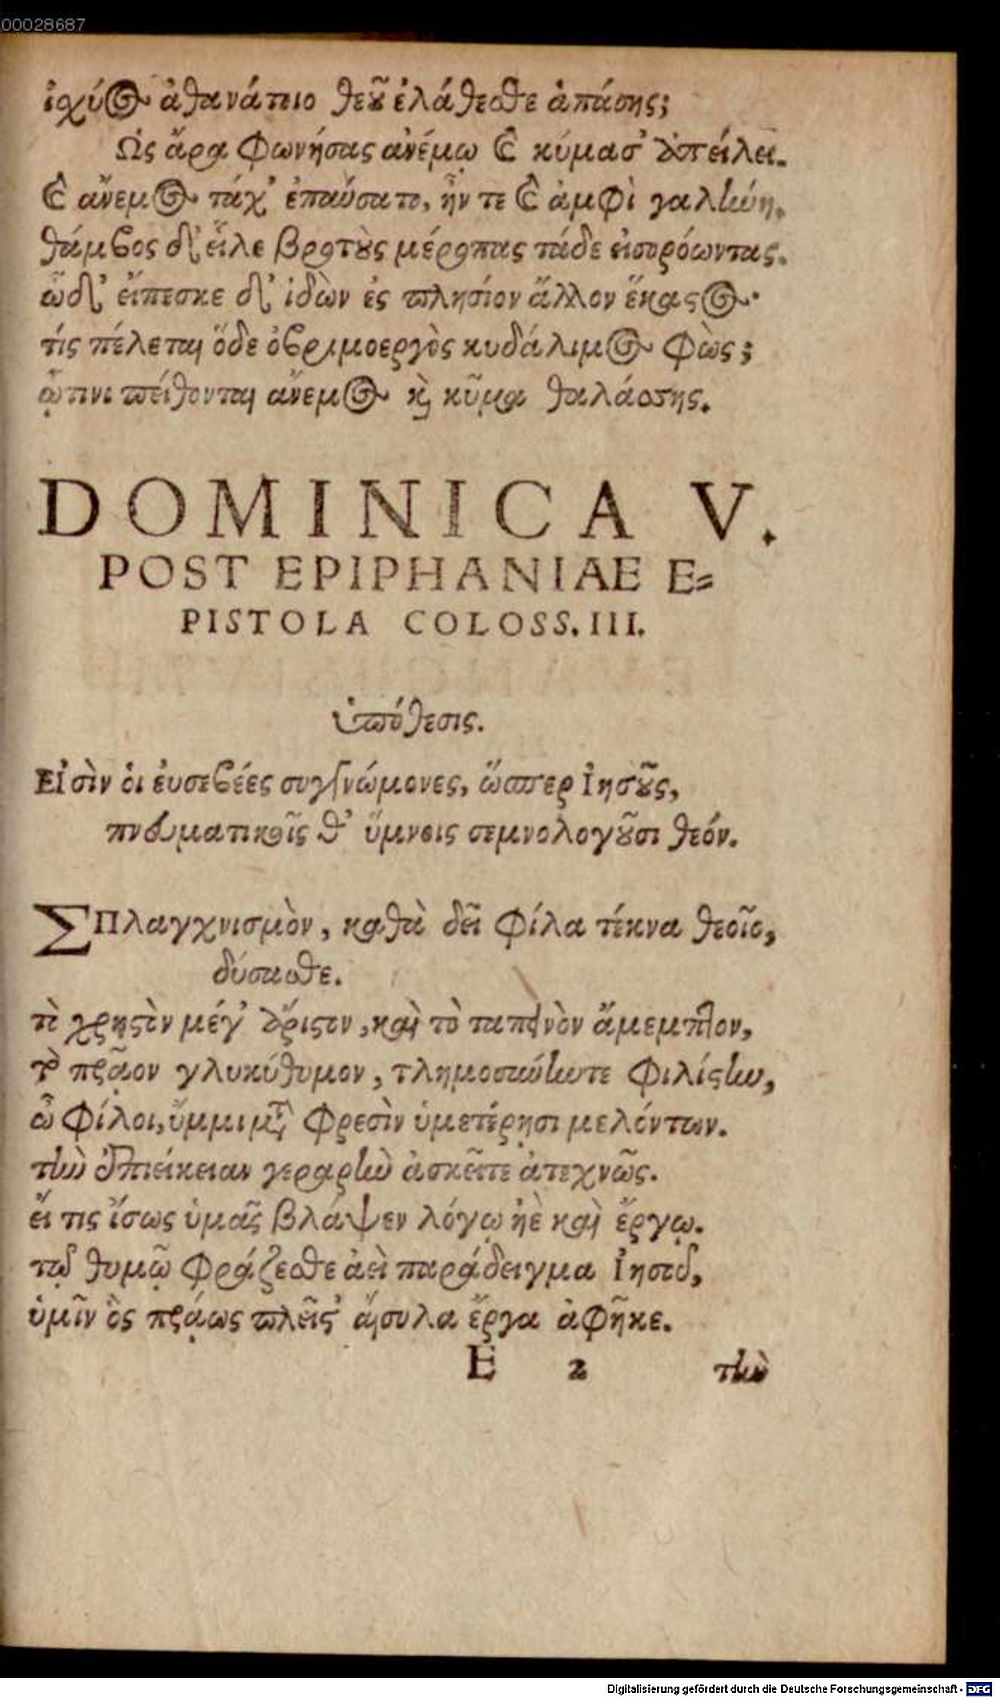 00028687
ἰχύος ἀθανάτοιο θεοῦ ἐλάθεσθε ἁπάσης;
Ὡς ἄρα φωνήσας ἀνέμῳ καὶ κύμασ' ἀπείλει.
καὶ ἄνεμος τάχ' ἐπαύσατο, ἦν τε καὶ ἀμφὶ γαλήνη.
θάμβος δ' εἷλε βροτοὺς μέροπας τάδε εἰσορόωντας.
ὧδ' εἴπεσκε δ' ἰδὼν ἐς πλησίον ἄλλον ἕκαστος·
τίς πέλεται ὅδε ὀβριμοεργὸς κυδάλιμος φὼς;
ᾧτινι πείθονται ἄνεμος καὶ κῦμα θαλάσσης.
DOMINICA V.
POST EPIPHANIAE E=
PISTOLA COLOSS. III.
ὑπόθεσις.
Εἰσὶν ὁι ἐυσεβέες συγγνώμονες, ὥσπερ Ἰησοῦς,
πνευματικοῖς θ' ὕμνοις σεμνολογοῦσι θεόν.
ΣΠλαγχνισμὸν, καθὰ δεῖ φίλα τέκνα θεοῖο,
δύσασθε.
τὸ χρηστὸν μέγ' ἄριστον, καὶ τὸ ταπεινὸν ἄμεμπτον,
τὸ πρᾶον γλυκύθυμον, τλημοσύνην τε φιλίστην,
ὦ φίλοι, ὔμμι μετὰ φρεσὶν ὑμετέρῃσι μελόντων.
τὴν ἐπιείκειαν γεραρὴν ἀσκεῖτε ἀτεχνῶς.
εἴ τις ἴσως ὑμᾶς βλάψεν λόγῳ ἠὲ καὶ ἔργῳ.
τῷ θυμῷ φράζεσθε ἀεὶ παράδειγμα Ἰησοῦ,
ὑμῖν ὃς πρᾴως πλεῖστ' ᾄσυλα ἔργα ἀφῆκε.
E 2 τὴν
Digitalisierung gefördert durch die Deutsche Forschungsgemeinschaft - DFG